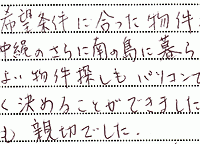 希望条件に合った物件
沖縄のさらに南の島に暮ら
よい物件探しもパソコンで
く決めることができました
も親切でした.